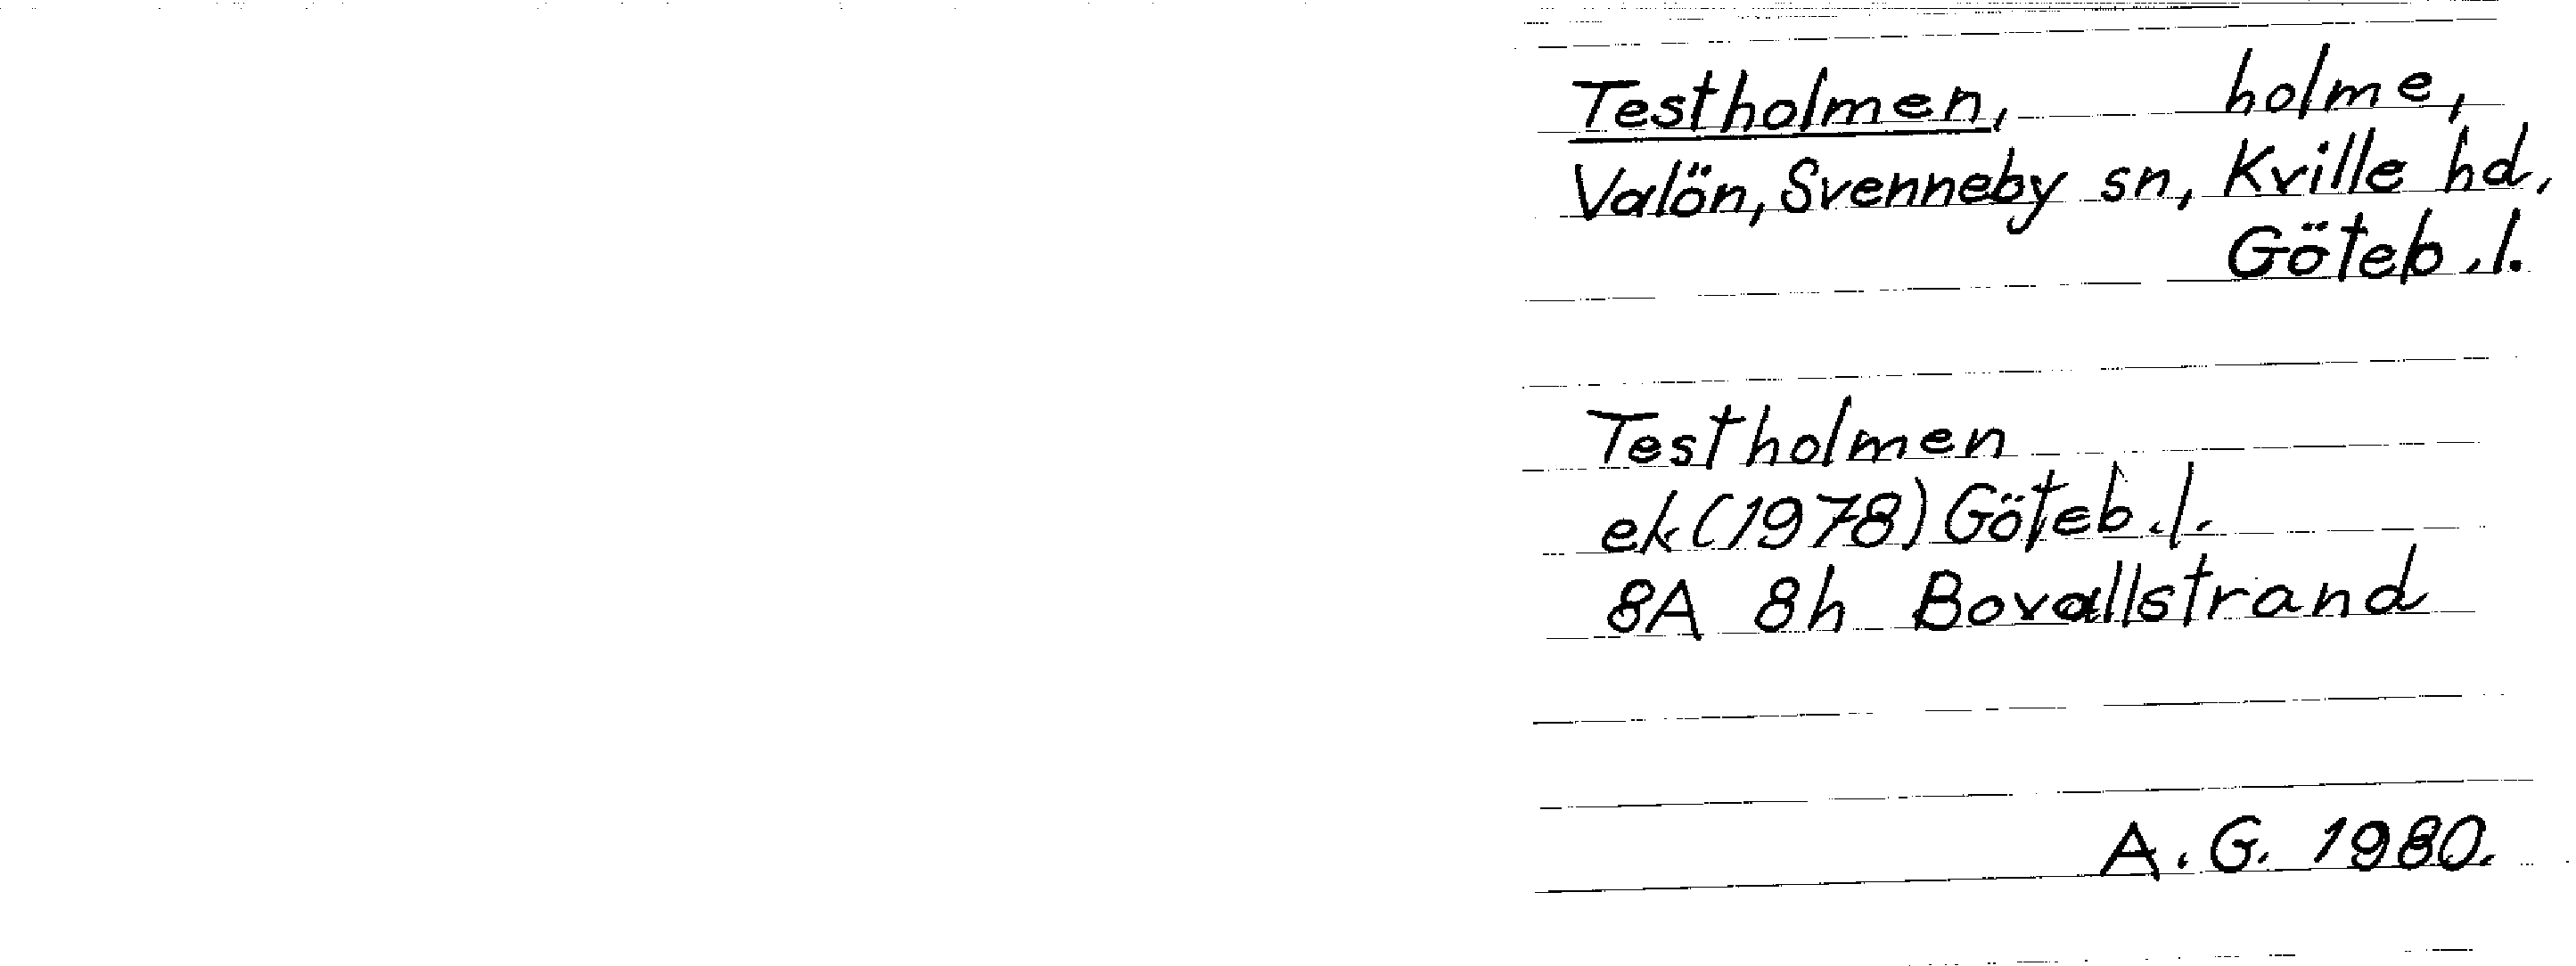 Testholmen, holme,
Valön, Svenneby sn, Kville hd,
Göteb.l.
Testholmen
ek (1978) Göteb.l.
8A 8h Bovallstrand
A.G. 1980.